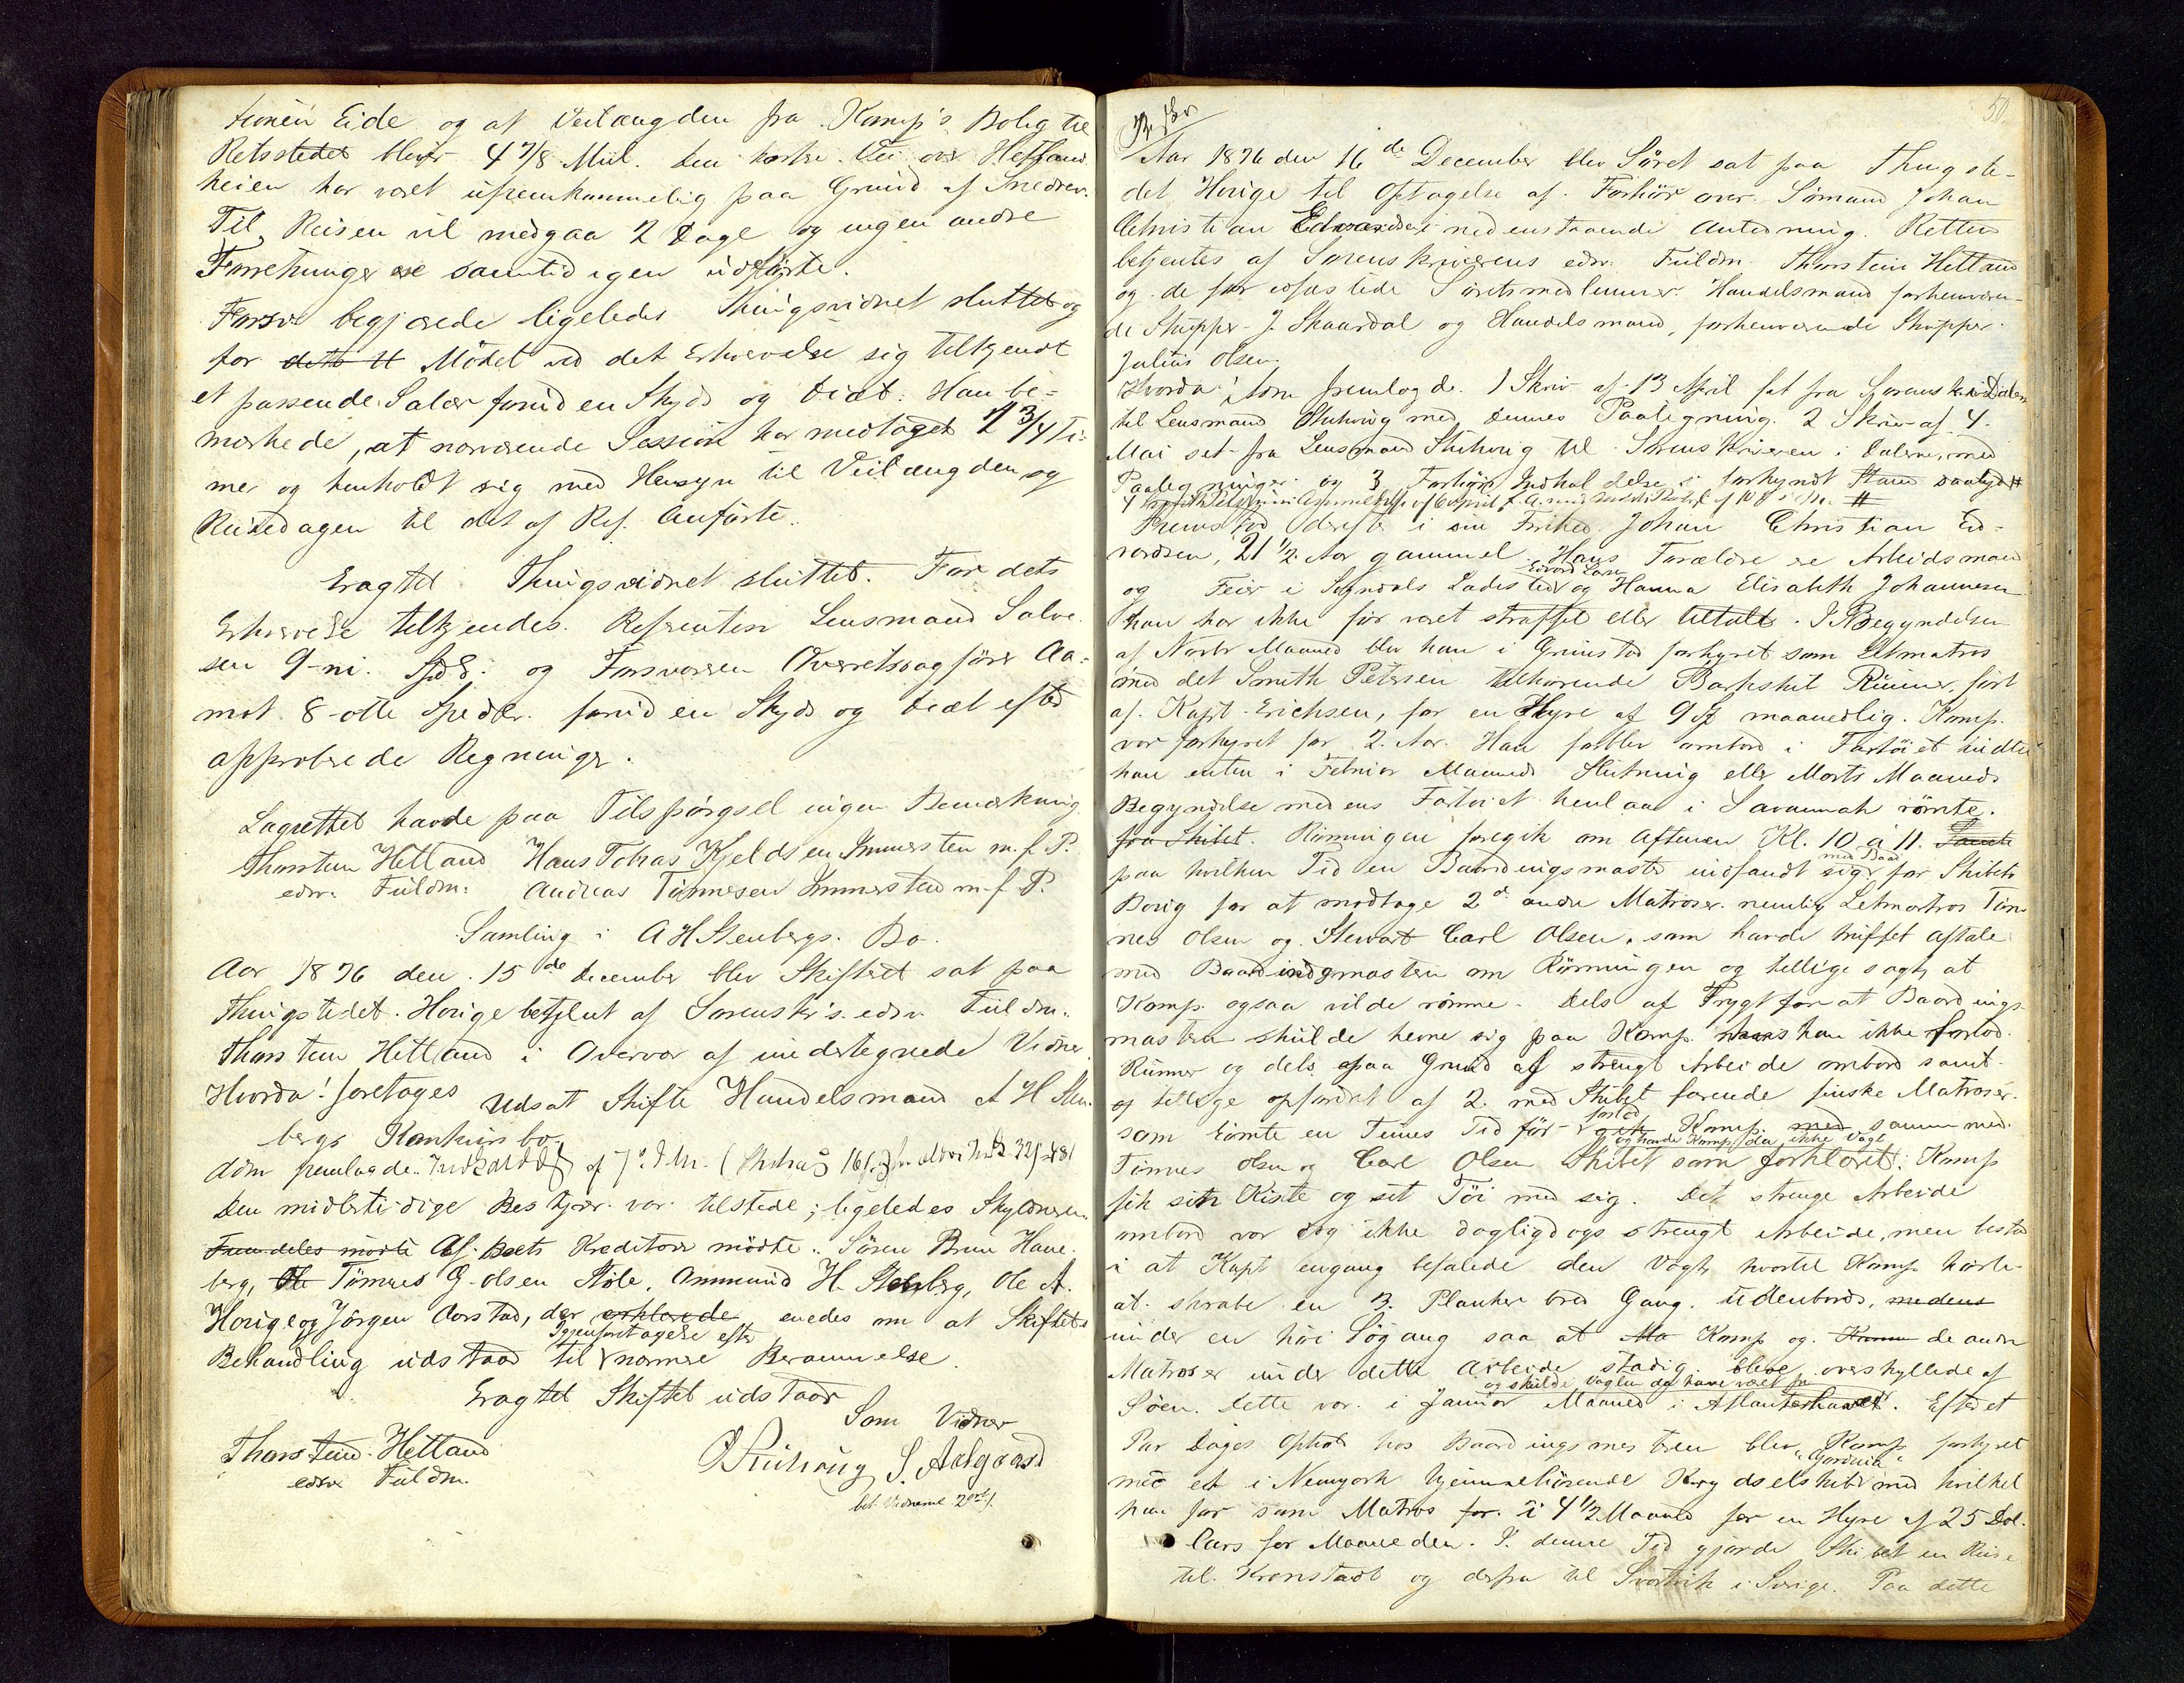 tionen Eide og at Veilængden fra Komp's Bolig til
Retsstedet bliver 4 7/8 Miil. Den kortre Vei over Hetland
heien har været ufremkommelig paa Grund af Snedrev.
Til Reisen vil medgaa 2 Dage og ingen andre
Forretninger ere samtidigen udførte.
Forsv. begjærede ligeledes Thingsvidnet sluttet og
for dets Mødet ved det Erhvervelse sig tilkjendt
et passende Salær foruden Skyds og Diæt. Han be-
mærkede, at nærværende Session har medtaget 1 3/4 Ti-
mer og henholdt sig med Hensyn til Veilængden og
Reisedagen til det af Ref. Anførte.
Eragtet Thingsvidnet sluttet. For dets
Erhvervelse tilkjendes Referenten Lensmand Salve-
sen 9-ni Spd. og Forsvareren Overretssagfører Aa-
mot 8-otte Spedlr. foruden Skyds og Diæt efter
approberede Regninger.
Lagrettet havde paa Tilspørgsel ingen Bemærkning
Thorstein Hetland Hans Tobias Kjeldsen Immersten m. f. P.
edsv. Fuldm. Andreas Tønnesen Immersten m. f. P.
Samling i A H Stenbergs Bo.
Aar 1876 den 15de December blev Skifteret sat paa
Thingstedet Houge betjent af Sorenskr's edsv. Fuldm.
Thorstein Hetland i Overvær af undertegnede Vidner
Hvorda! foretoges Udsat Skifte Handelsmand A H Sten-
bergs Konkursbo.
Adm fremlagde Indkaldelse af 7de
Den midlertidige Bestyrer var tilstede; ligeledes Skyldneren.
Fremdeles mødte Af Boets Kreditorer mødte Søren Bruu Haue-
berg, Ole Tønnes G. Olsen Støle, Ommund H. Stenberg, Ole A.
Houge og Jørgen Aarstad, der erklærede enedes om at Skiftets
Igjenforetagelse efter
Behandling udstaar til nærmere Berammelse.
Eragtet Skiftet udstaar
Som Vidner
Thorstein Hetland O Stuhoug S. Aalgaard
edsv. Fuldm.
bet. Vidnerne 2 ort
50
Aar 1876 den 16de December blev Søret sat paa Thingste-
det Houge til Optagelse af Forhør over Sømand Johan
Christian Edvardsen i nedenstaaende Anledning. Retten
betjentes af Sorenskriverens edsv. Fuldm. Thorstein Hetland
og de før edfæstede Søretsmedlemmer Handelsmand forhenværen-
de Skipper J. Skaardal og Handelsmand, forhenværende Skipper
Julius Olsen.
Hvorda! som fremlagde 1 Skriv. af 13 April fat fra Sorenskriv. i Dalerne
til Lensmand Stuhoug med Dennes Paategning. 2 Skriv. af 4.
Mai set. fra Lensmand Stuhoug til Sorenskriveren i Dalerne, med
Paategninger og 3 Forhørs Indkaldelse i forkyndt Stand saalyd
Fremstod derefter i sin Frihed Johan Christian Ed-
vardsen, 21 1/2 Aar gammel. Hans Forældre ere Arbeidsmand
Edvard Larsen
og Feier i Sogndals Ladested og Hanna Elisabeth Johannesen
Han har ikke før været straffet eller tiltalt. I Begyndelsen
af Novbr Maaned blev han i Grimstad forhyret som Letmatros
med det Smith Petersen tilhørende Barkskib Runner, ført
af Kapt. Erichsen, for en Hyre af 9 Spd maanedlig. Komp.
var forhyret for 2 Aar. Han forblev ombord i Fartøiet indtil
han enten i Februar Maaneds Slutning eller Marts Maaneds
Begyndelse medens Fartøiet henlaa i Savannah rømte.
fra Skibet. Rømningen foregik om Aftenen Kl. 10 à 11.
med Baad
paa hvilken Tid en Baardingsmaster indfandt sig for Skibets
Boug for at modtage 2de andre Matroser nemlig Letmatros Tøn-
nes Olsen og Stewart Carl Olsen, som havde truffet Aftale
med Baardingsmasteren om Rømningen og tillige sagt, at
Komp. ogsaa vilde rømme. Dels af Frygt for at Baardings-
masteren skulde hevne sig paa Komp. hvis han ikke forlod
Runner og dels paa Grund af strengt Arbeide ombord samt
og tillige opfordret af 2 med Skibet farende finske Matroser
forlod
som rømte en Times Tid før gik Komp. med sammen med
og havde Komp. da ikke Vagt
Tønnes Olsen og Carl Olsen Skibet som forklaret. Komp
fik sin Kiste og sit Tøi med sig. Det strenge Arbeide
ombord var dog ikke dagligdags strengt Arbeide, men bestod
i at Kapt engang befalede den Vagt, hvortil Komp hørte
at skrabe en 3 Planker bred Gang udenbords, medens
under en høi Søgang saa at Komp og de andre
Matroser under dette Arbeide stadig bleve overskyllede af
og skulde Vagten da have været fri
Søen. Dette var i Januar Maaned i Atlanterhavet. Efter et
Par Dages Ophold hos Baardingsmesteren blev Komp forhyret
"Gordinia"
med et i Newyork hjemmehørende Krydselskib med hvilket
han for som Matros for i 4 1/2 Maaned for en Hyre af 25 Dol-
lars for Maaneden. I denne Tid gjorde Skibet en Reise
til Kronstadt og derfra til Svartvik i Sverige. Paa dette